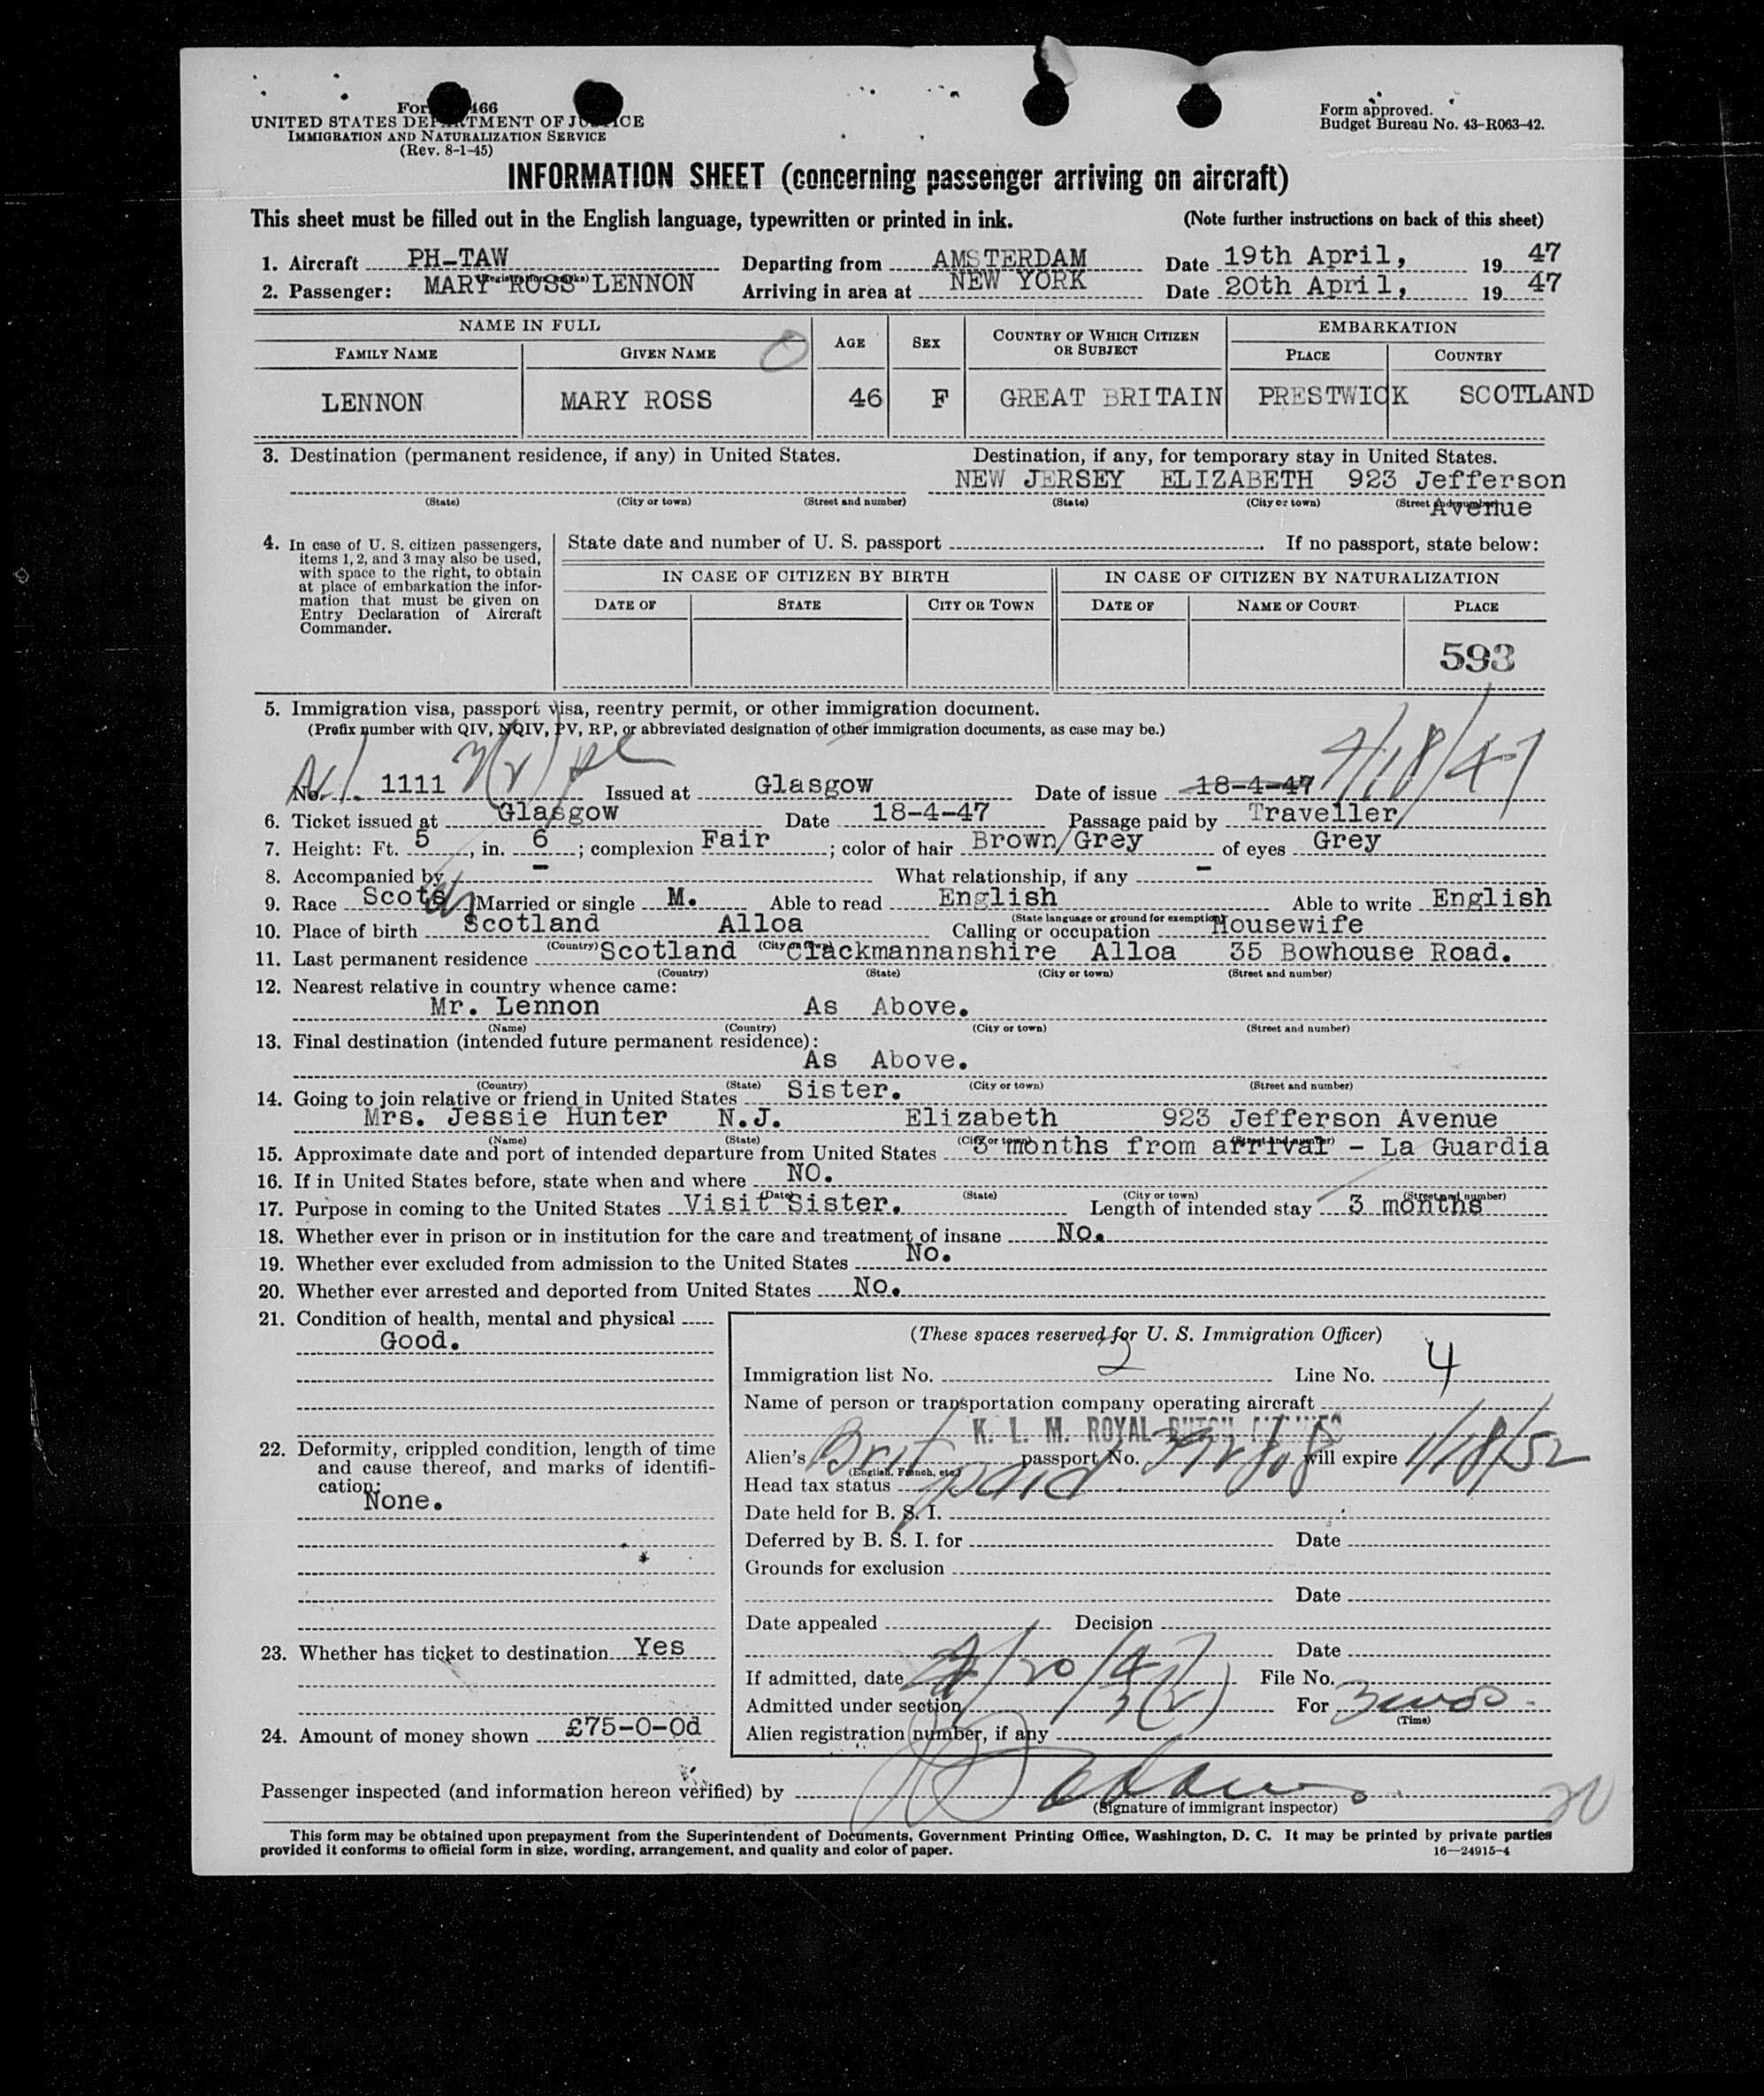 For 466
UNITED STATES DEPARTMENT OF JUSTICE
IMMIGRATION AND NATURALIZATION SERVICE
(Rev. 8-1-45)
Form approved.
Budget Bureau No. 43-R063-42.
INFORMATION SHEET (concerning passenger arriving on aircraft)
This sheet must be filled out in the English language, typewritten or printed in ink. (Note further instructions on back of this sheet)
1. Aircraft PH-TAW (Registration marks) Departing from AMSTERDAM Date 19th April, 19 47
2. Passenger: MARY ROSS LENNON Arriving in area at NEW YORK Date 20th April, 19 47
NAME IN FULL AGE SEX COUNTRY OF WHICH CITIZEN OR SUBJECT EMBARKATION
FAMILY NAME GIVEN NAME PLACE COUNTRY
LENNON MARY ROSS 46 F GREAT BRITAIN PRESTWICK SCOTLAND
3. Destination (permanent residence, if any) in United States. Destination, if any, for temporary stay in United States.
NEW JERSEY ELIZABETH 923 Jefferson
(State) (City or town) (Street and number) (State) (City or town) (Street and number) Avenue
4. In case of U. S. citizen passengers,
items 1, 2, and 3 may also be used,
with space to the right, to obtain
at place of embarkation the infor-
mation that must be given on
Entry Declaration of Aircraft
Commander.
State date and number of U. S. passport . If no passport, state below:
IN CASE OF CITIZEN BY BIRTH IN CASE OF CITIZEN BY NATURALIZATION
DATE OF STATE CITY OR TOWN DATE OF NAME OF COURT PLACE
593
5. Immigration visa, passport visa, reentry permit, or other immigration document.
(Prefix number with QIV, NQIV, PV, RP, or abbreviated designation of other immigration documents, as case may be.)
No. 1111 3(2) Issued at Glasgow Date of issue 18-4-47 4/18/47
6. Ticket issued at Glasgow Date 18-4-47 Passage paid by Traveller
7. Height: Ft. 5, in. 6; complexion Fair; color of hair Brown/Grey of eyes Grey
8. Accompanied by - What relationship, if any -
9. Race Scots Married or single M. Able to read English Able to write English
(State language or ground for exemption)
10. Place of birth Scotland Alloa Calling or occupation Housewife
(Country) (City or town)
11. Last permanent residence Scotland Clackmannanshire Alloa 35 Bowhouse Road.
(Country) (State) (City or town) (Street and number)
12. Nearest relative in country whence came:
Mr. Lennon As Above.
(Name) (Country) (City or town) (Street and number)
13. Final destination (intended future permanent residence):
As Above.
(Country) (State) (City or town) (Street and number)
14. Going to join relative or friend in United States Sister.
Mrs. Jessie Hunter N.J. Elizabeth 923 Jefferson Avenue
(Name) (State) (City or town) (Street and number)
15. Approximate date and port of intended departure from United States 3 months from arrival - La Guardia
16. If in United States before, state when and where NO.
(Date) (State) (City or town) (Street and number)
17. Purpose in coming to the United States Visit Sister. Length of intended stay 3 months
18. Whether ever in prison or in institution for the care and treatment of insane No.
19. Whether ever excluded from admission to the United States No.
20. Whether ever arrested and deported from United States No.
21. Condition of health, mental and physical
Good.
22. Deformity, crippled condition, length of time
and cause thereof, and marks of identifi-
cation:
None.
23. Whether has ticket to destination Yes
24. Amount of money shown £75-0-0d
(These spaces reserved for U. S. Immigration Officer)
Immigration list No. 2 Line No. 4
Name of person or transportation company operating aircraft
K. L. M. ROYAL DUTCH AIRLINES
Alien's Brit passport No. will expire 1/18/52
(English, French, etc.)
Head tax status paid
Date held for B. S. I.
Deferred by B. S. I. for Date
Grounds for exclusion
Date
Date appealed Decision
Date
If admitted, date 4/20/47 File No.
Admitted under section 3(2) For 3 mos.
(Time)
Alien registration number, if any
Passenger inspected (and information hereon verified) by
(Signature of immigrant inspector)
20
This form may be obtained upon prepayment from the Superintendent of Documents, Government Printing Office, Washington, D. C. It may be printed by private parties
provided it conforms to official form in size, wording, arrangement, and quality and color of paper. 16—24915-4